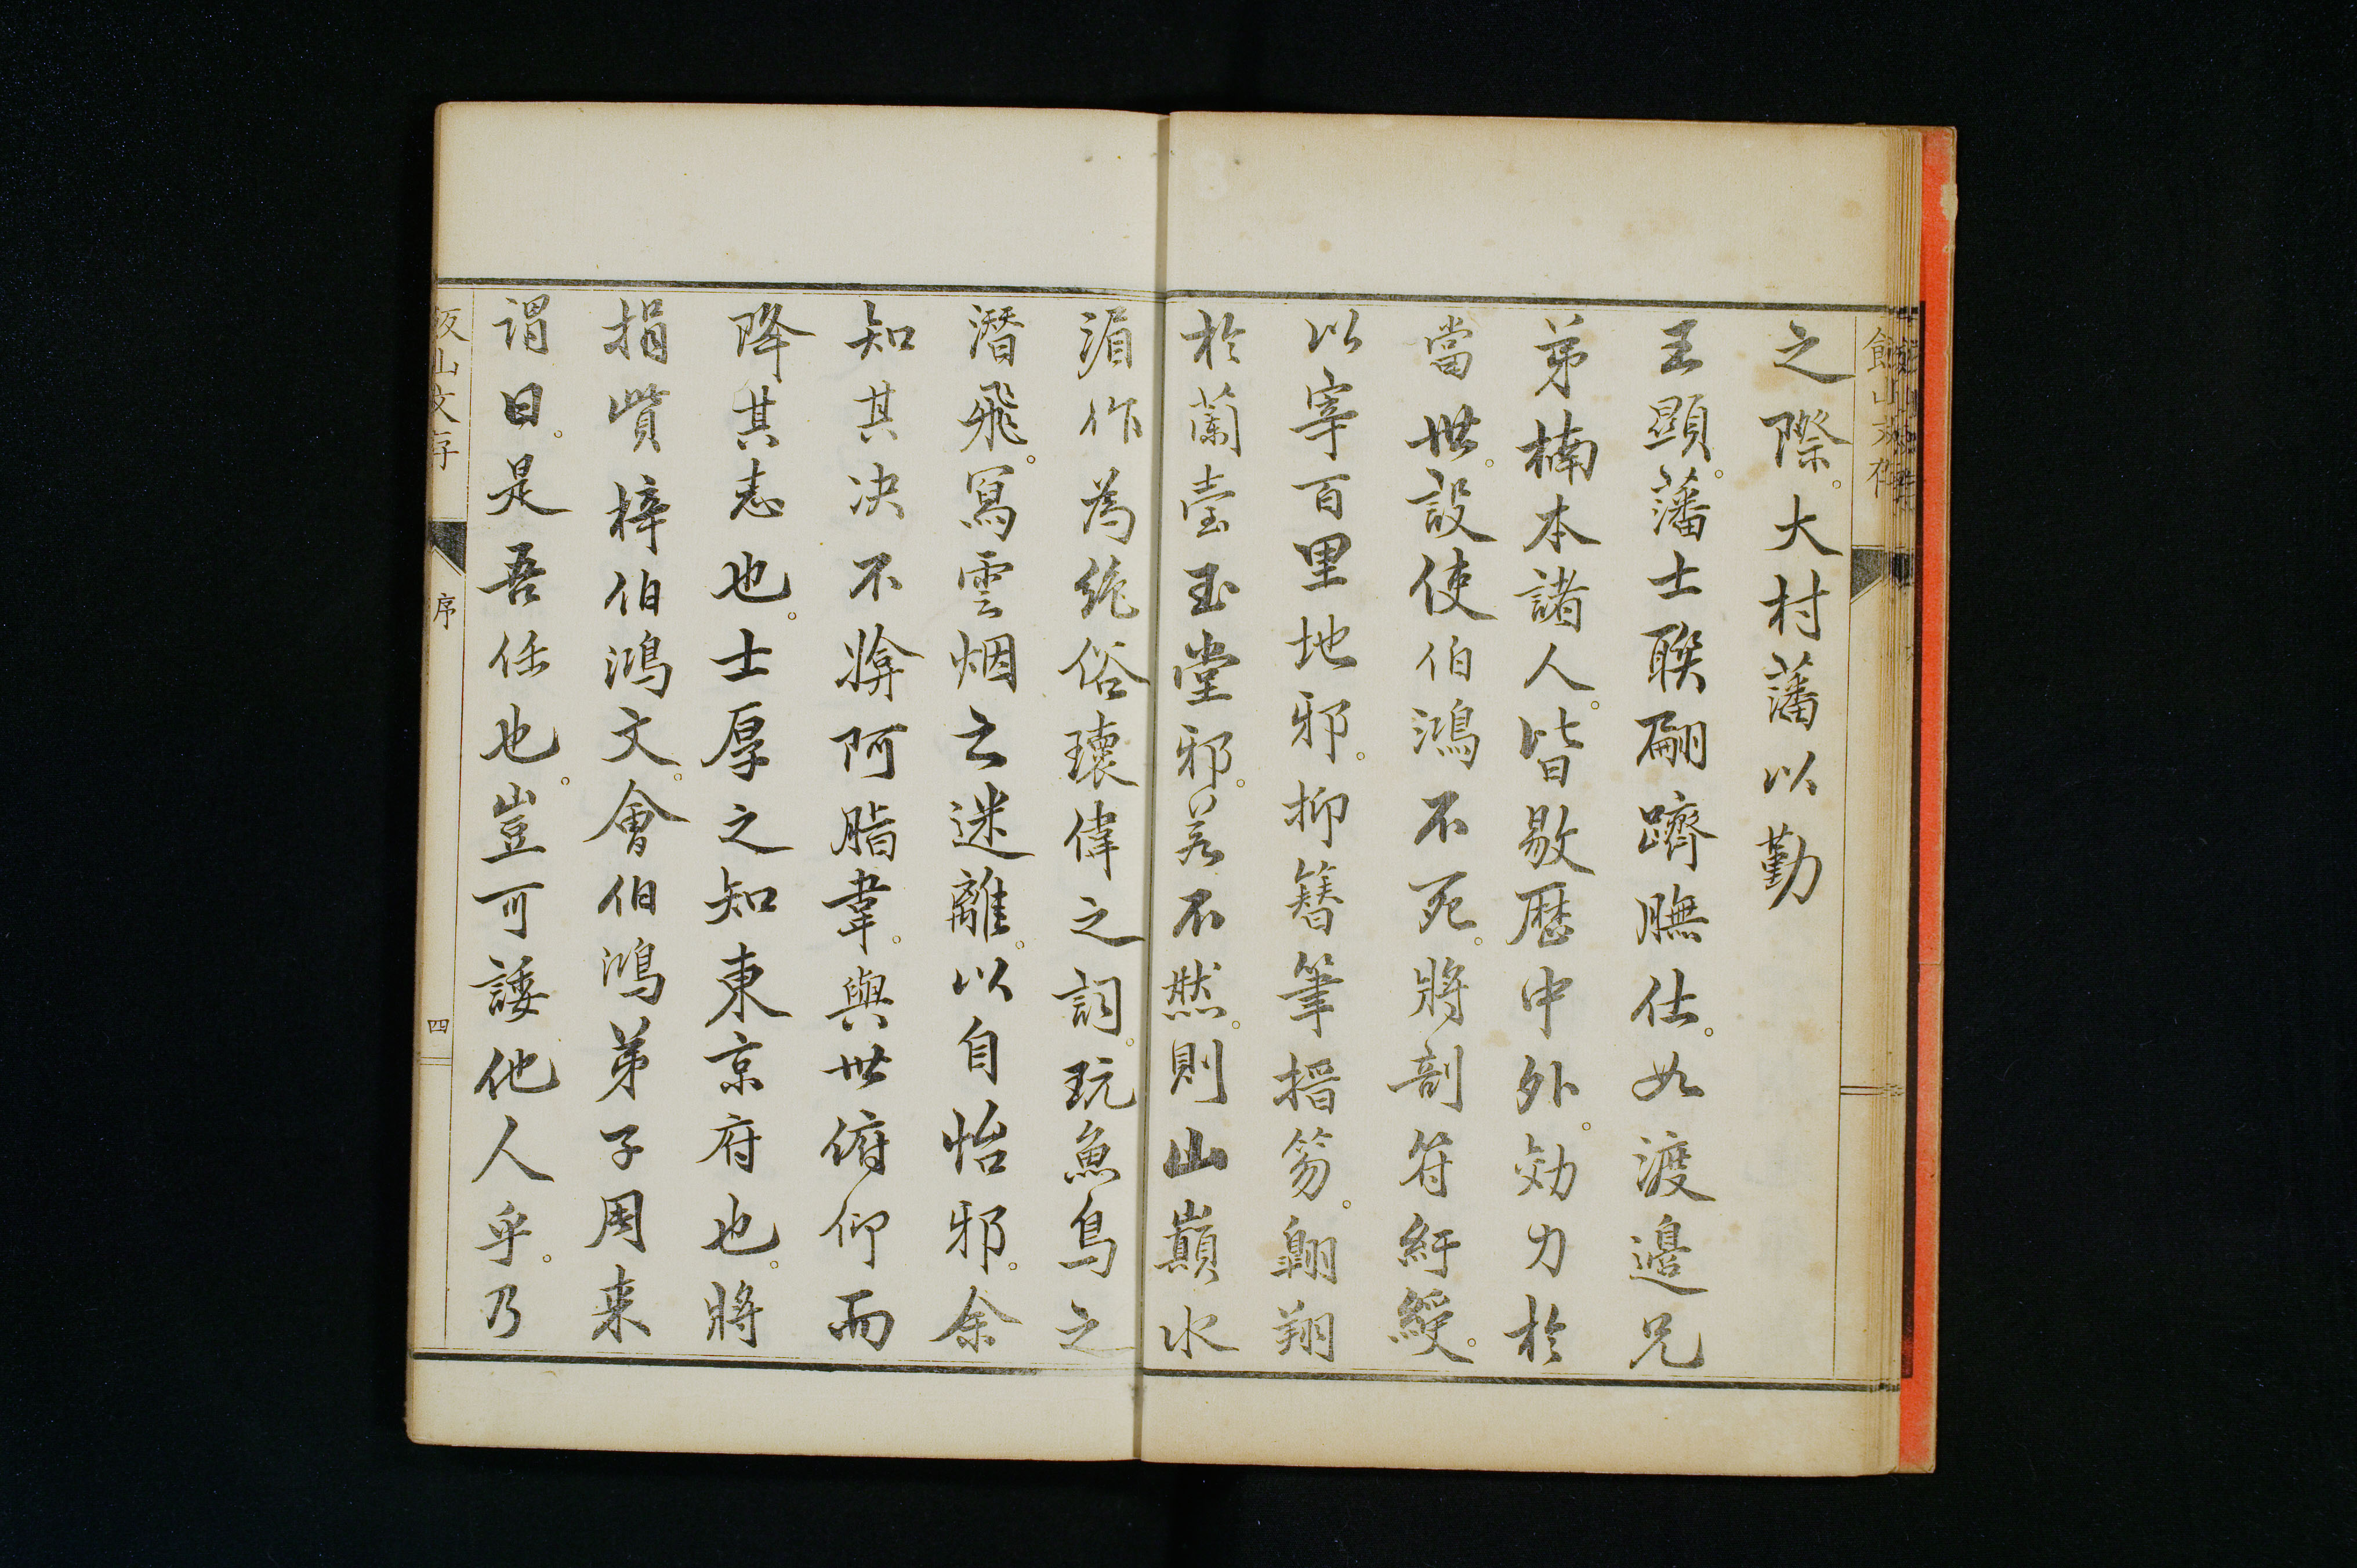 之際。大村藩以勤
王顯。藩士聯翩躋膴仕。如渡邊兄
弟楠本諸人。皆敭歷中外。効力於
當世。設使伯鴻不死。將剖符紆綬。
以宰百里地邪。抑簪筆搢笏。翺翔
於蘭臺玉堂邪。若不然。則山巔水
湄作為絶俗瓌偉之詞。玩魚鳥之
潛飛。寫雲烟之迷離。以自怡邪。余
知其决不將阿脂韋。與世俯仰而
降其志也。士厚之知東京府也。將
捐貲梓伯鴻文。會伯鴻弟子周来
謂曰。是吾任也。豈可諉他人乎。乃
飯山文存
序
四
飯山文存